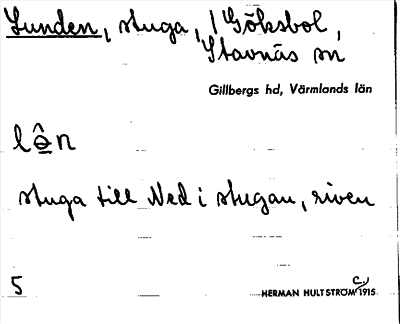 Lunden, stuga, / Göksbol,
Stavnäs sn
Gillbergs hd, Värmlands län
lô̱n
stuga till Ned i stugan, riven
5
HERMAN HULTSTRÖM C.) 1915